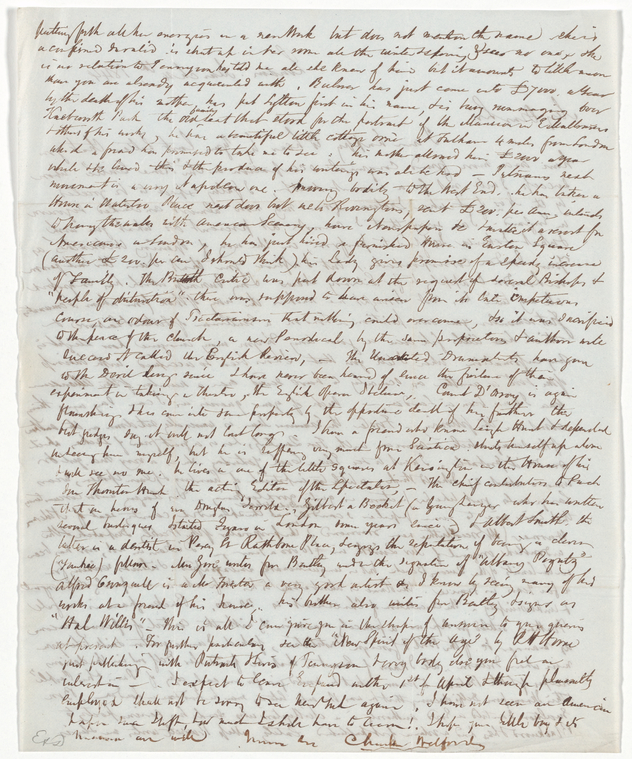 putting forth all her energies in a new Work but does not mention the name she is
a confirmed invalid is shut up in her room all the winter & spring & sees no one, she
is no relation to Tennyson, has told me all she knew of him but it amounts to little more
than you are already acquainted with. Bulwer has just come into £7000 a year
by the death of his mother, has put Lytton first in his name & is busy rummaging over
Knebworth Park the old family seat that stood for the portrait of the Mansion in E Maltravers
& others of his works, he has a beautiful little cottage orné at Fulham 4 miles from London
which a friend has promised to take me to see, his mother allowed him £ a year
while she lived this & the produce of his writings was all he had — Putnam's next
movement is a very Napoleon one. moving bodily to the West End. he has taken a
House in Waterloo Place next door but one to Rivingtons, rent £200. per Ann, intends
to hang the walls with American Scenery, have Newspapers &c & make it a resort for
Americans in London, he has just hired a furnished House in Euston Square
(another £200. per an I should think) his Lady gives promise of a speedy increase
of family. The British Critic was put down at the request of several Bishops &
"people of distinction" there was supposed to have arisen from its late
course, an odour of Tractarianism that nothing could overcome, so it was sacrificed
to the peace of the church, a new Periodical by the same proprietors & authors will
succeed it called the English Review, The Unacted Dramatists have gone
to the Devil long since I have never been heard of since the failure of their
experiment in taking a theatre, the English Opera I believe, Count D'Orsay is again
flourishing & has come into some property by the opportune death of his father the
best judges say it will not last long. I have a friend who knows Leigh Hunt & I depended
on seeing him myself, but he is suffering very much from Sciatica shuts himself up alone
& will see no one, he lives in one of the little squares at Kensington in the House of his
Son Thornton Hunt the acting Editor of the Spectator — The chief contributors to Punch
that one hears of are Douglas Jerrold, Gilbert a Becket (a Young Lawyer who has written
several burlesques & stated Essays in London some years since) & Albert Smith, the
latter is a dentist in Percy St Rathbone Place, & enjoys the reputation of being a clever
(Yankee) fellow. Mrs Gore writes for Bentley under the signature of "Albany Poyntz"
Alfred Crowquill is a Mr Forester a very good artist & I know by seeing many of his
works at a friend of his house, his brother also writes for Bentley & signs as
"Hal Willis". This is all I can give you in the shape of answers to your queries
at present. For further particulars see the "New Spirit of the Age" by R H Horne
just publishing with Portraits & Lives of Tennyson & every body else you feel an
interest in — I expect to leave England within 1st of April & though pleasantly
employed shall not be sorry to see New York again. I have not seen an American
paper since I left how much I shall have to learn! I hope your little boy & Mrs
are well Yours Ever Charles Welford